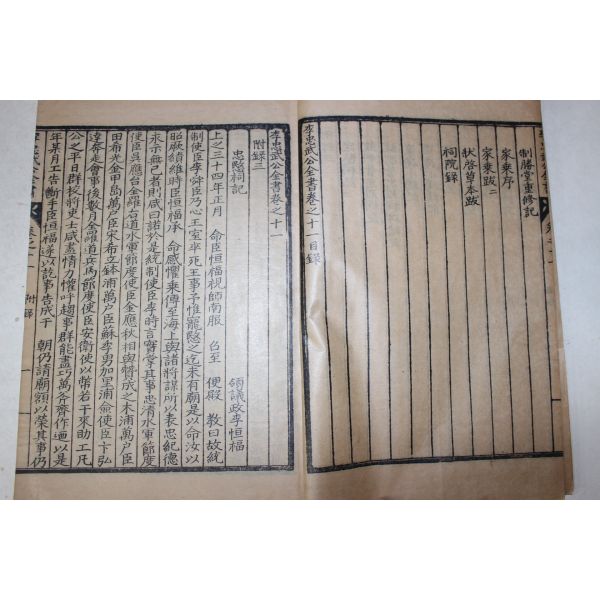 制勝堂重修記
家乗序
家乗跋二
狀啓草本跋
祠院錄
李忠武公全書卷之十一目録
李忠武公全書卷之十一
附録三
忠愍祠記
領議政李恒福
上之三十四年正月 命臣恒福視師南服 召至 便殿 教曰故統
制使臣李舜臣乃心王室卒死王事予惟寵愍之迄未有廟是以命汝以
昭厥績維時臣恒福承 命感懼乘傳至海上與諸將謀所以表忠紀德
永示無已者則咸曰諾於是統制使臣李時言實掌其事忠清水軍節度
使臣吳應台全羅右道水軍節度使臣金應秋相與贊成之木浦萬戶臣
田希光金甲島萬戶臣宋希立鉢浦萬戶臣蘇季男加里浦僉使臣卞弘
達奔走會事後數月全羅道兵馬節度使臣安衛使以幣若干來助工凡
公之平日群校將吏士咸盡情力懽呼趨事群能盡巧萬務齊作逈以是
年某月工告斷手臣恒福遂以訖事告成于 朝仍請廟額以榮其事仍
卷之十一
附錄
一